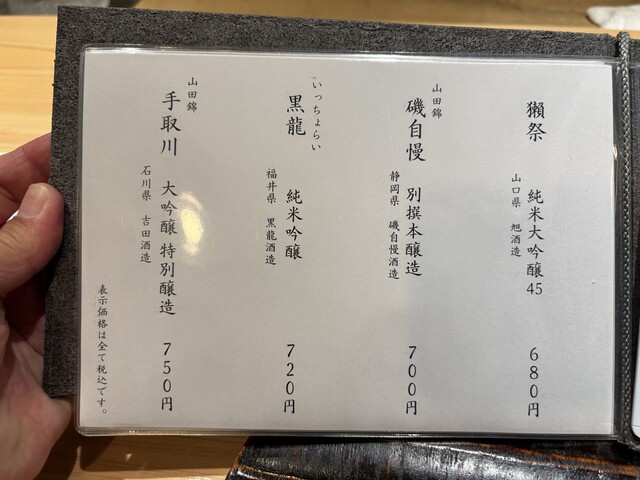 獺祭 純米大吟醸45 680円
山口県 旭酒造
山田錦
磯自慢 別撰本醸造 700円
静岡県 磯自慢酒造
いっちょらい
黒龍 純米吟醸 720円
福井県 黒龍酒造
山田錦
手取川 大吟醸 特別醸造 750円
石川県 吉田酒造
表示価格は全て税込です。